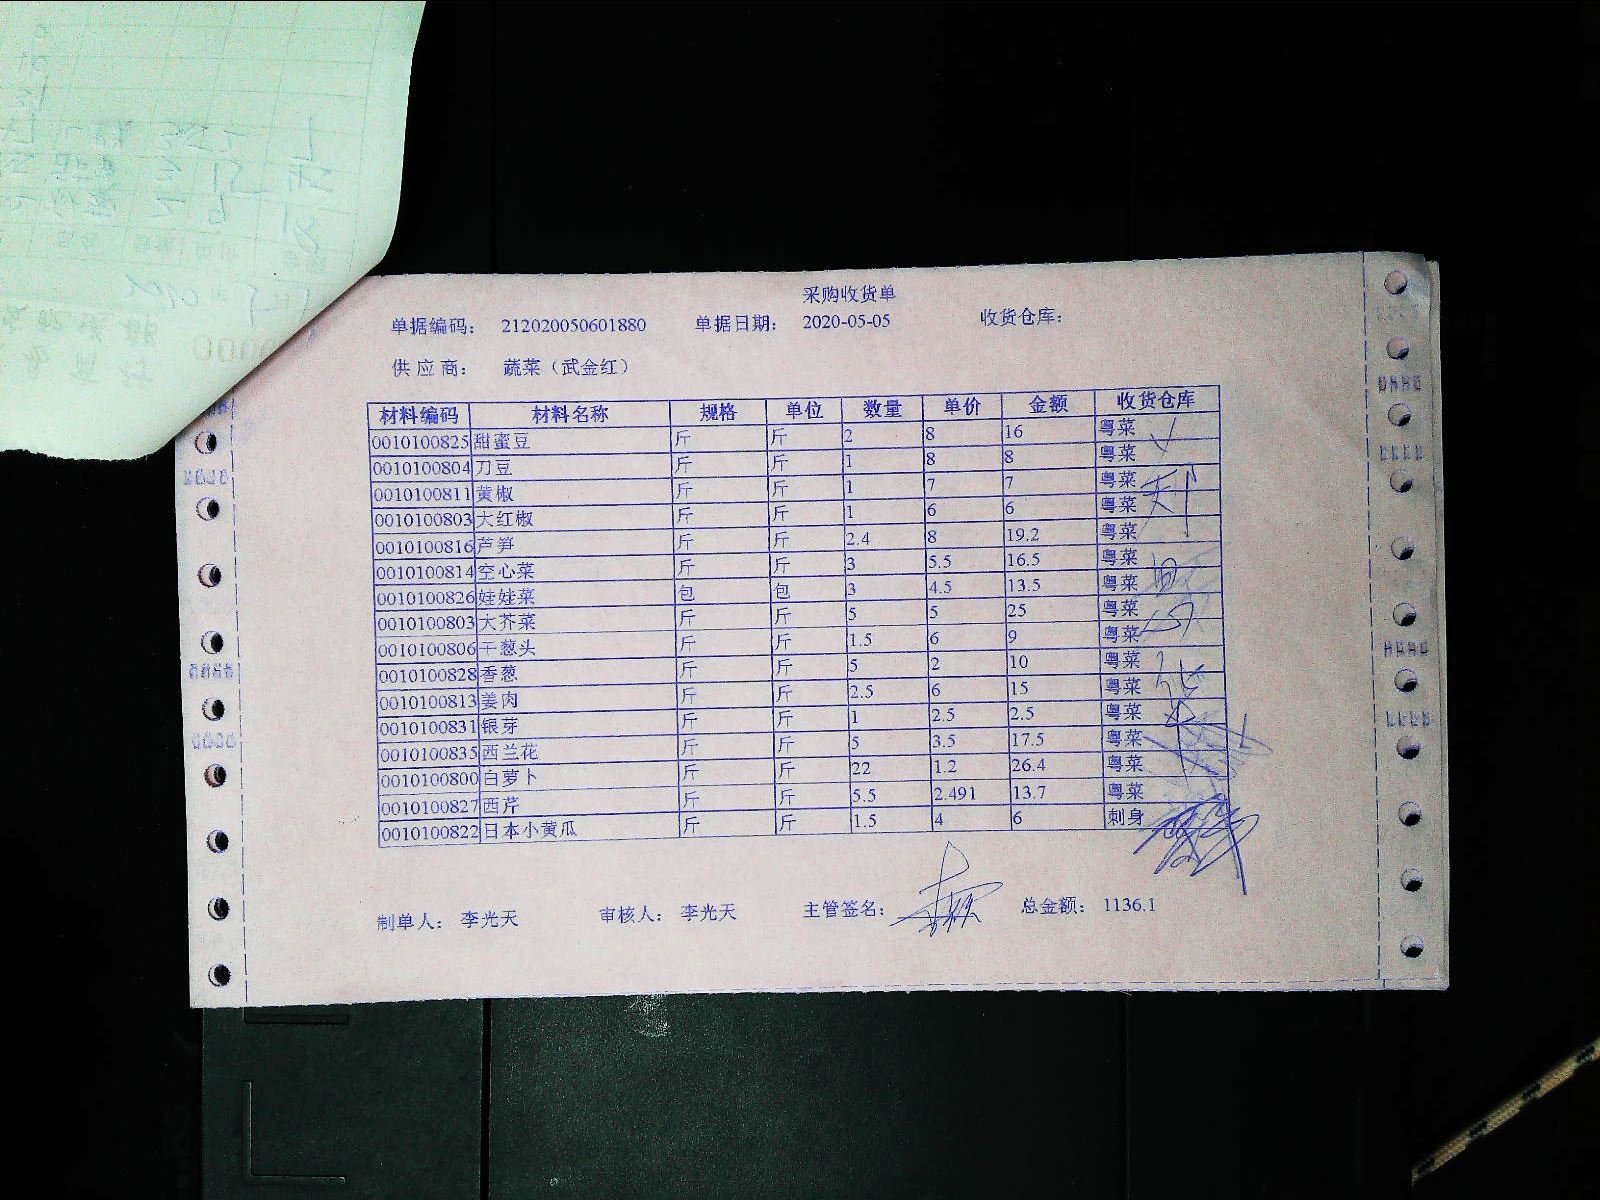 采购收货单
单据编码： 212020050601880 单据日期： 2020-05-05 收货仓库：
供应商： 蔬菜（武金红）
材料编码 材料名称 规格 单位 数量 单价 金额 收货仓库
0010100825 甜蜜豆 斤 斤 2 8 16 粤菜
0010100804 刀豆 斤 斤 1 8 8 粤菜
0010100811 黄椒 斤 斤 1 7 7 粤菜
0010100803 大红椒 斤 斤 1 6 6 粤菜
0010100816 芦笋 斤 斤 2.4 8 19.2 粤菜
0010100814 空心菜 斤 斤 3 5.5 16.5 粤菜
0010100826 娃娃菜 包 包 3 4.5 13.5 粤菜
0010100803 大芥菜 斤 斤 5 5 25 粤菜
0010100806 干葱头 斤 斤 1.5 6 9 粤菜
0010100828 香葱 斤 斤 5 2 10 粤菜
0010100813 姜肉 斤 斤 2.5 6 15 粤菜
0010100831 银芽 斤 斤 1 2.5 2.5 粤菜
0010100835 西兰花 斤 斤 5 3.5 17.5 粤菜
0010100800 白萝卜 斤 斤 22 1.2 26.4 粤菜
0010100827 西芹 斤 斤 5.5 2.491 13.7 粤菜
0010100822 日本小黄瓜 斤 斤 1.5 4 6 刺身
制单人： 李光天 审核人： 李光天 主管签名： 总金额： 1136.1